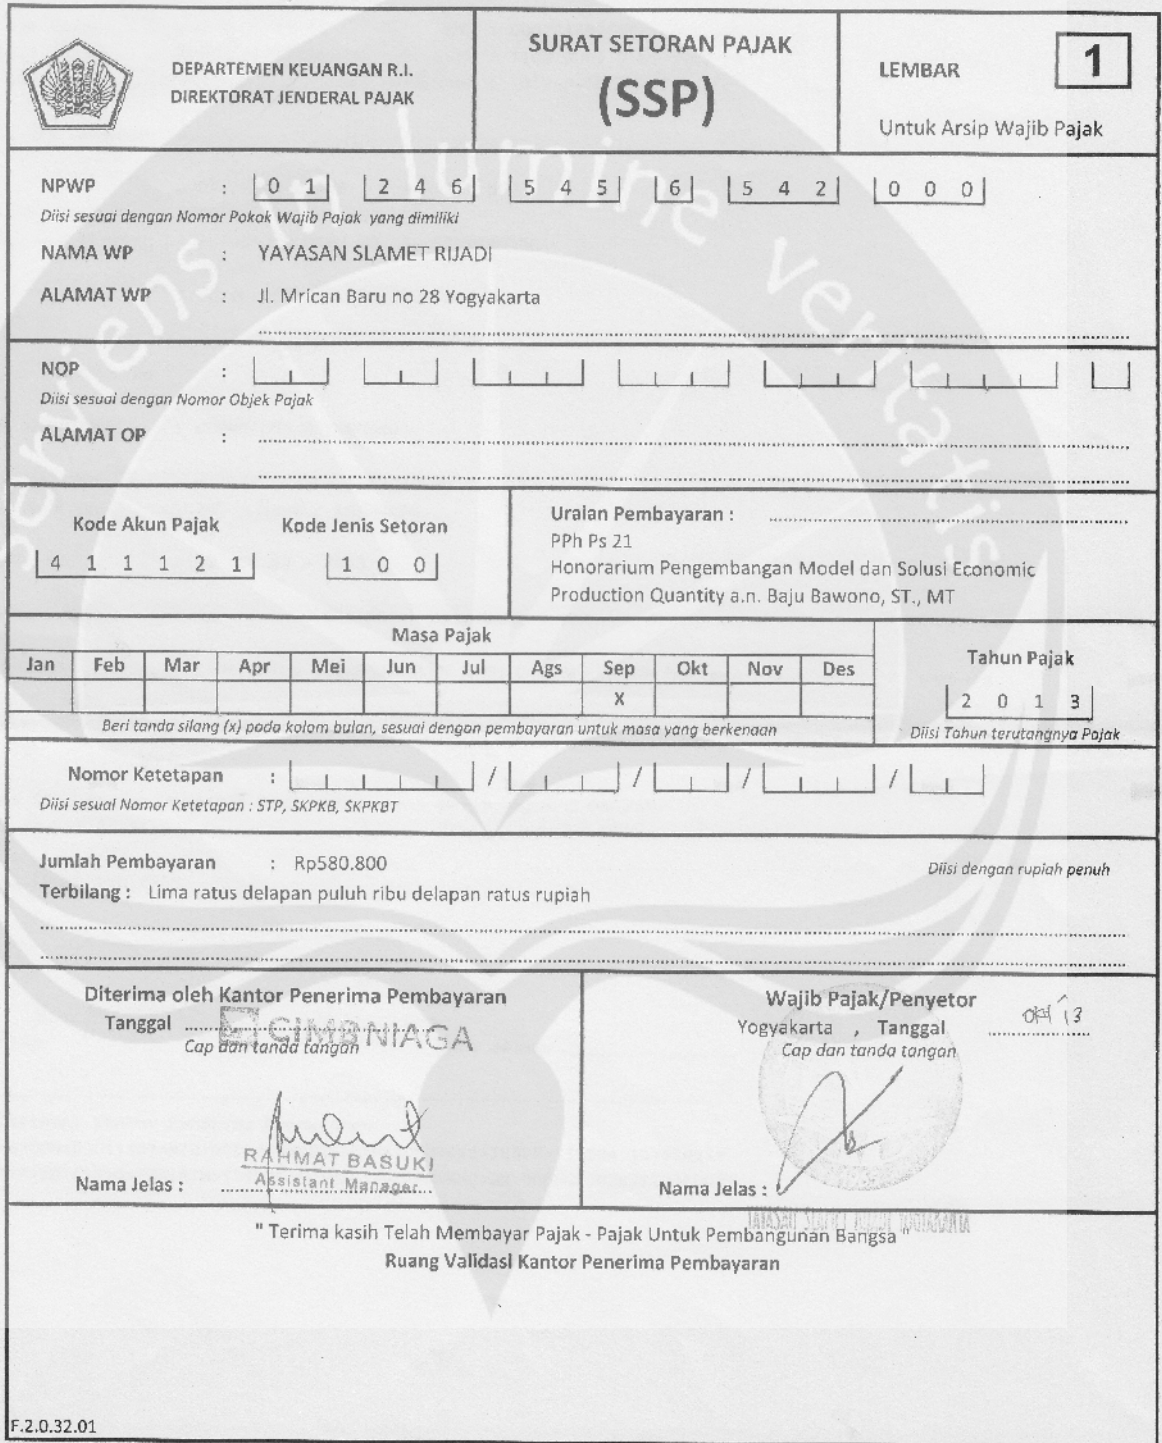 DEPARTEMEN KEUANGAN R.I.
DIREKTORAT JENDERAL PAJAK
SURAT SETORAN PAJAK
(SSP)
LEMBAR 1
Untuk Arsip Wajib Pajak
NPWP : 0 1 2 4 6 5 4 5 6 5 4 2 0 0 0
Diisi sesuai dengan Nomor Pokok Wajib Pajak yang dimiliki
NAMA WP : YAYASAN SLAMET RIJADI
ALAMAT WP : Jl. Mrican Baru no 28 Yogyakarta
NOP :
Diisi sesuai dengan Nomor Objek Pajak
ALAMAT OP :
Kode Akun Pajak Kode Jenis Setoran
4 1 1 1 2 1 1 0 0
Uraian Pembayaran :
PPh Ps 21
Honorarium Pengembangan Model dan Solusi Economic
Production Quantity a.n. Baju Bawono, ST., MT
Masa Pajak
Jan Feb Mar Apr Mei Jun Jul Ags Sep Okt Nov Des
X
Beri tanda silang (x) pada kolom bulan, sesuai dengan pembayaran untuk masa yang berkenaan
Tahun Pajak
2 0 1 3
Diisi Tahun terutangnya Pajak
Nomor Ketetapan : / / / /
Diisi sesuai Nomor Ketetapan : STP, SKPKB, SKPKBT
Jumlah Pembayaran : Rp580.800
Diisi dengan rupiah penuh
Terbilang : Lima ratus delapan puluh ribu delapan ratus rupiah
Diterima oleh Kantor Penerima Pembayaran
Tanggal
CIMB NIAGA
Cap dan tanda tangan
RAHMAT BASUKI
Assistant Manager
Nama Jelas :
Wajib Pajak/Penyetor
Yogyakarta , Tanggal okt '13
Cap dan tanda tangan
Nama Jelas :
YAYASAN SLAMET RIJADI YOGYAKARTA
" Terima kasih Telah Membayar Pajak - Pajak Untuk Pembangunan Bangsa "
Ruang Validasi Kantor Penerima Pembayaran
F.2.0.32.01
serviens in lumine veritatis